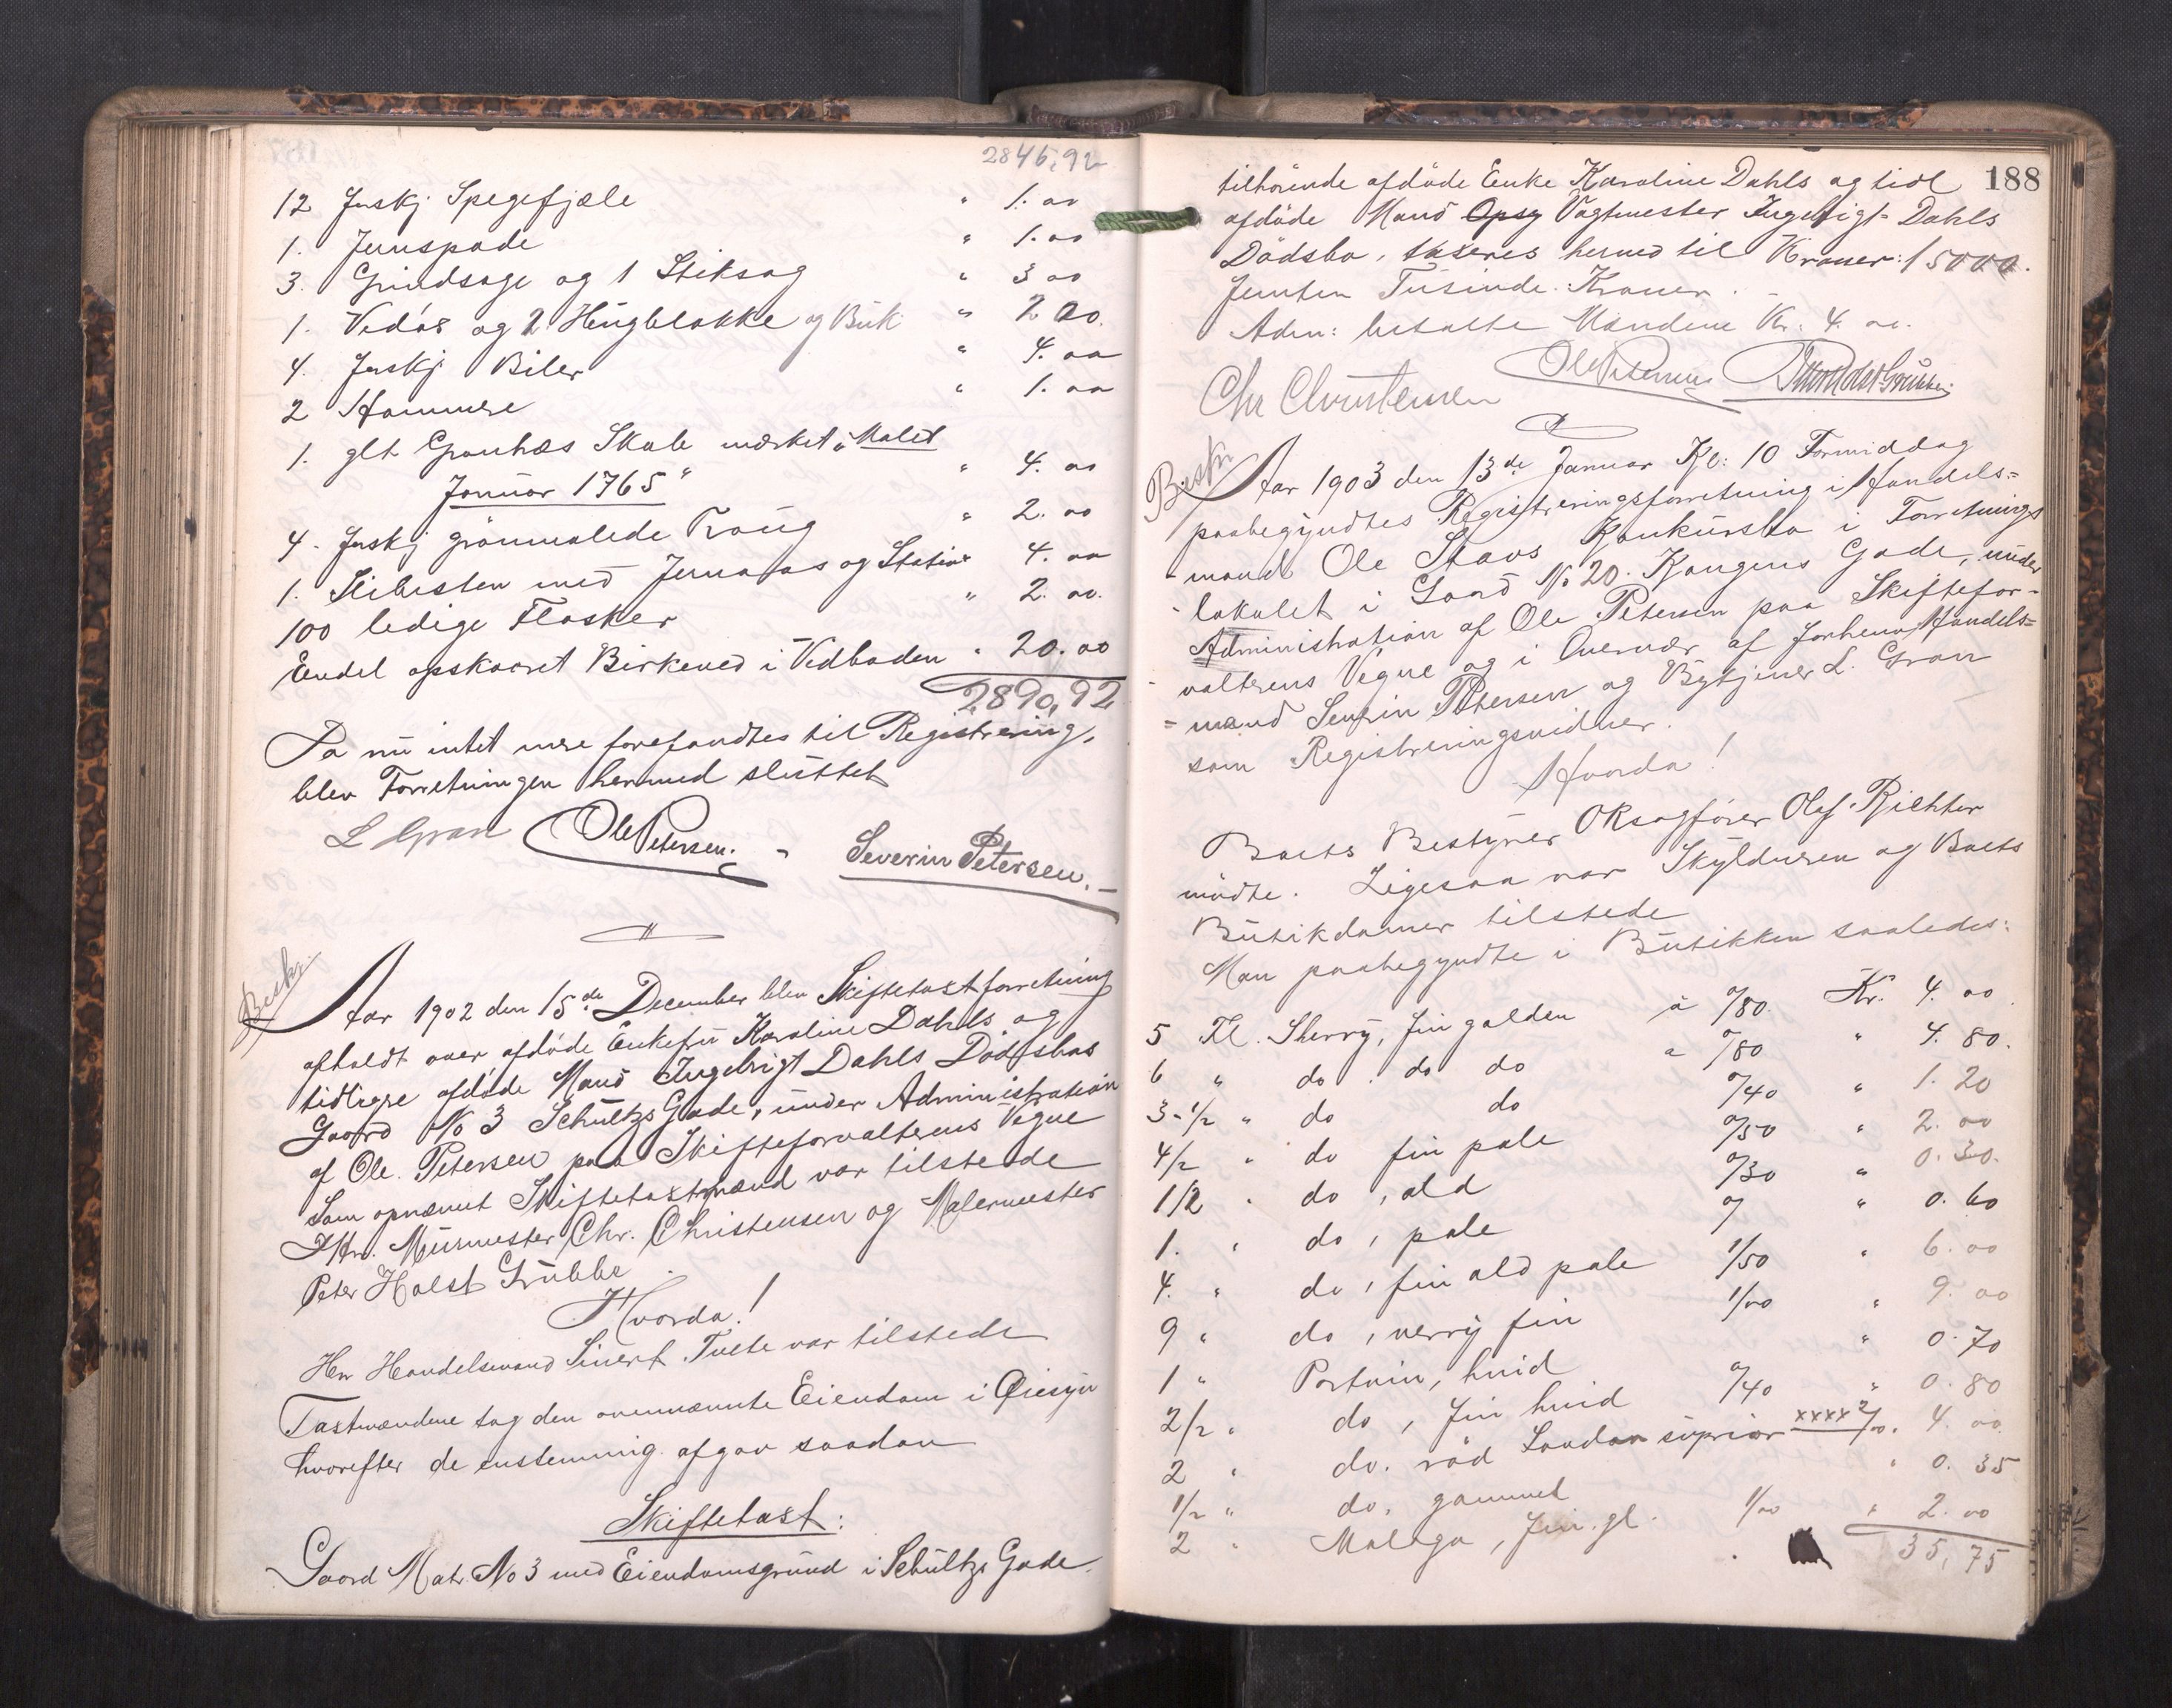 2846,92
12 forskj. Spegefjæle " 1. 00
1. Jernspade " 1. 00
3. Grindsage og 1 Stiksag " 3 00
1. Vedøs og 2 Hugblokke og Buk " 2 00.
4. forskj Biler " 4. 00
2 Hammere " 1. 00
1. glt Granhæs Skab mærket „Malet
Januar 1765" " 4. 00
4. forskj grønmalede Traug " 2. 00
1. Slibesten med Jernaas og Stativ " 4. 00
100 ledige Flasker " 2. 00.
Endel opskaaret Birkeved i Vedboden " 20. 00
2890,92
Da nu intet mere forefandtes til Registrering,
blev Forretningen hermed sluttet
L Gran Ole Petersen. - Severin Petersen. -
Beskr.
Aar 1902 den 15de December blev Skiftetaxtforretning
afholdt over afdøde Enkefru Karoline Dahls og
tidligere afdøde Mand Ingebrigt Dahls Dødsbos
Gaard No 3 Schultzs Gade, under Administration
af Ole Petersen paa Skifteforvalterens Vegne
Som opnævnt Skiftetaxtmænd var tilstede
DHrr. Murmester Chr. Christensen og Malermester
Peter Holst Grubbe.
Hvorda!
Herr Handelsmand Sivert Tvete var tilstede
Taxtmændene tog den ovennævnte Eiendom i Øiesyn
hvorefter de enstemmig afgav saadan
Skiftetaxt:
Gaard Matr. No 3 med Eiendomsgrund i Schultzs Gade.
188
tilhørende afdøde Enke Karoline Dahls og tidl
afdøde Mand Opsy Vagtmester Ingebrigt Dahls
Dødsbo, taxeres hermed til Kroner: 15000.
Femten Tusinde Kroner. -
Adm: betalte Mændene Kr. 4. 00.
Chr Christensen Ole Petersen P Holst Grubbe.
Beskr
Aar 1903 den 13de Januar Kl: 10 Formiddag
paabegyndtes Registreringsforretning i Handels=
- mand Ole Staavs Konkursbo i Forretnings
- lokalet i Gaard No 20. Kongens Gade, under
Administration af Ole Petersen paa Skiftefor-
- valterens Vegne og i Overvær af forhenv Handels=
= mand Severin Petersen og Bytjener L. Gran
som Registreringsvidner.
Hvorda!
Boets Bestyrer Oksagfører Olaf Richter
mødte. Ligesaa var Skyldneren og Boets
Butikdamer tilstede
Man paabegyndte i Butikken saaledes:
5 Fl. Sherry, fin golden à 0/80. Kr. 4. 00.
6 " do. do do a 0/80 " 4. 80.
3-1/2 " do do 0/40 " 1. 20
4/2 " do fin pale 0/50 " 2. 00
1/2 " do, old 0/30 " 0. 30.
1. " do, pale 0/ " 0. 60
4. " do, fin old pale 1/50 " 6. 00
9 " do, verry fin 1/00 " 9. 00
1 " Portvin, hvid " 0. 70
2/2 " do, fin hvid 0/40 " 0. 80
2 " do. rød London suprior xxxx 2/00. 4. 00.
1/2 " do, gammel " 0. 35
2 " Malaga, fin. gl. 1/00 " 2. 00
35,75